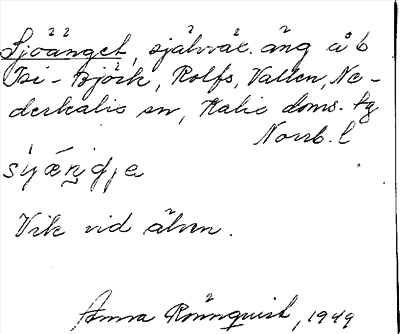 Sjöänget, självväx. äng å b
Isi-Björk, Rolfs, Vallen, Ne-
derkalix sn, Kalix doms. tg
Norrb. l
Vik vid älven.
Anna Rönnquist, 1949